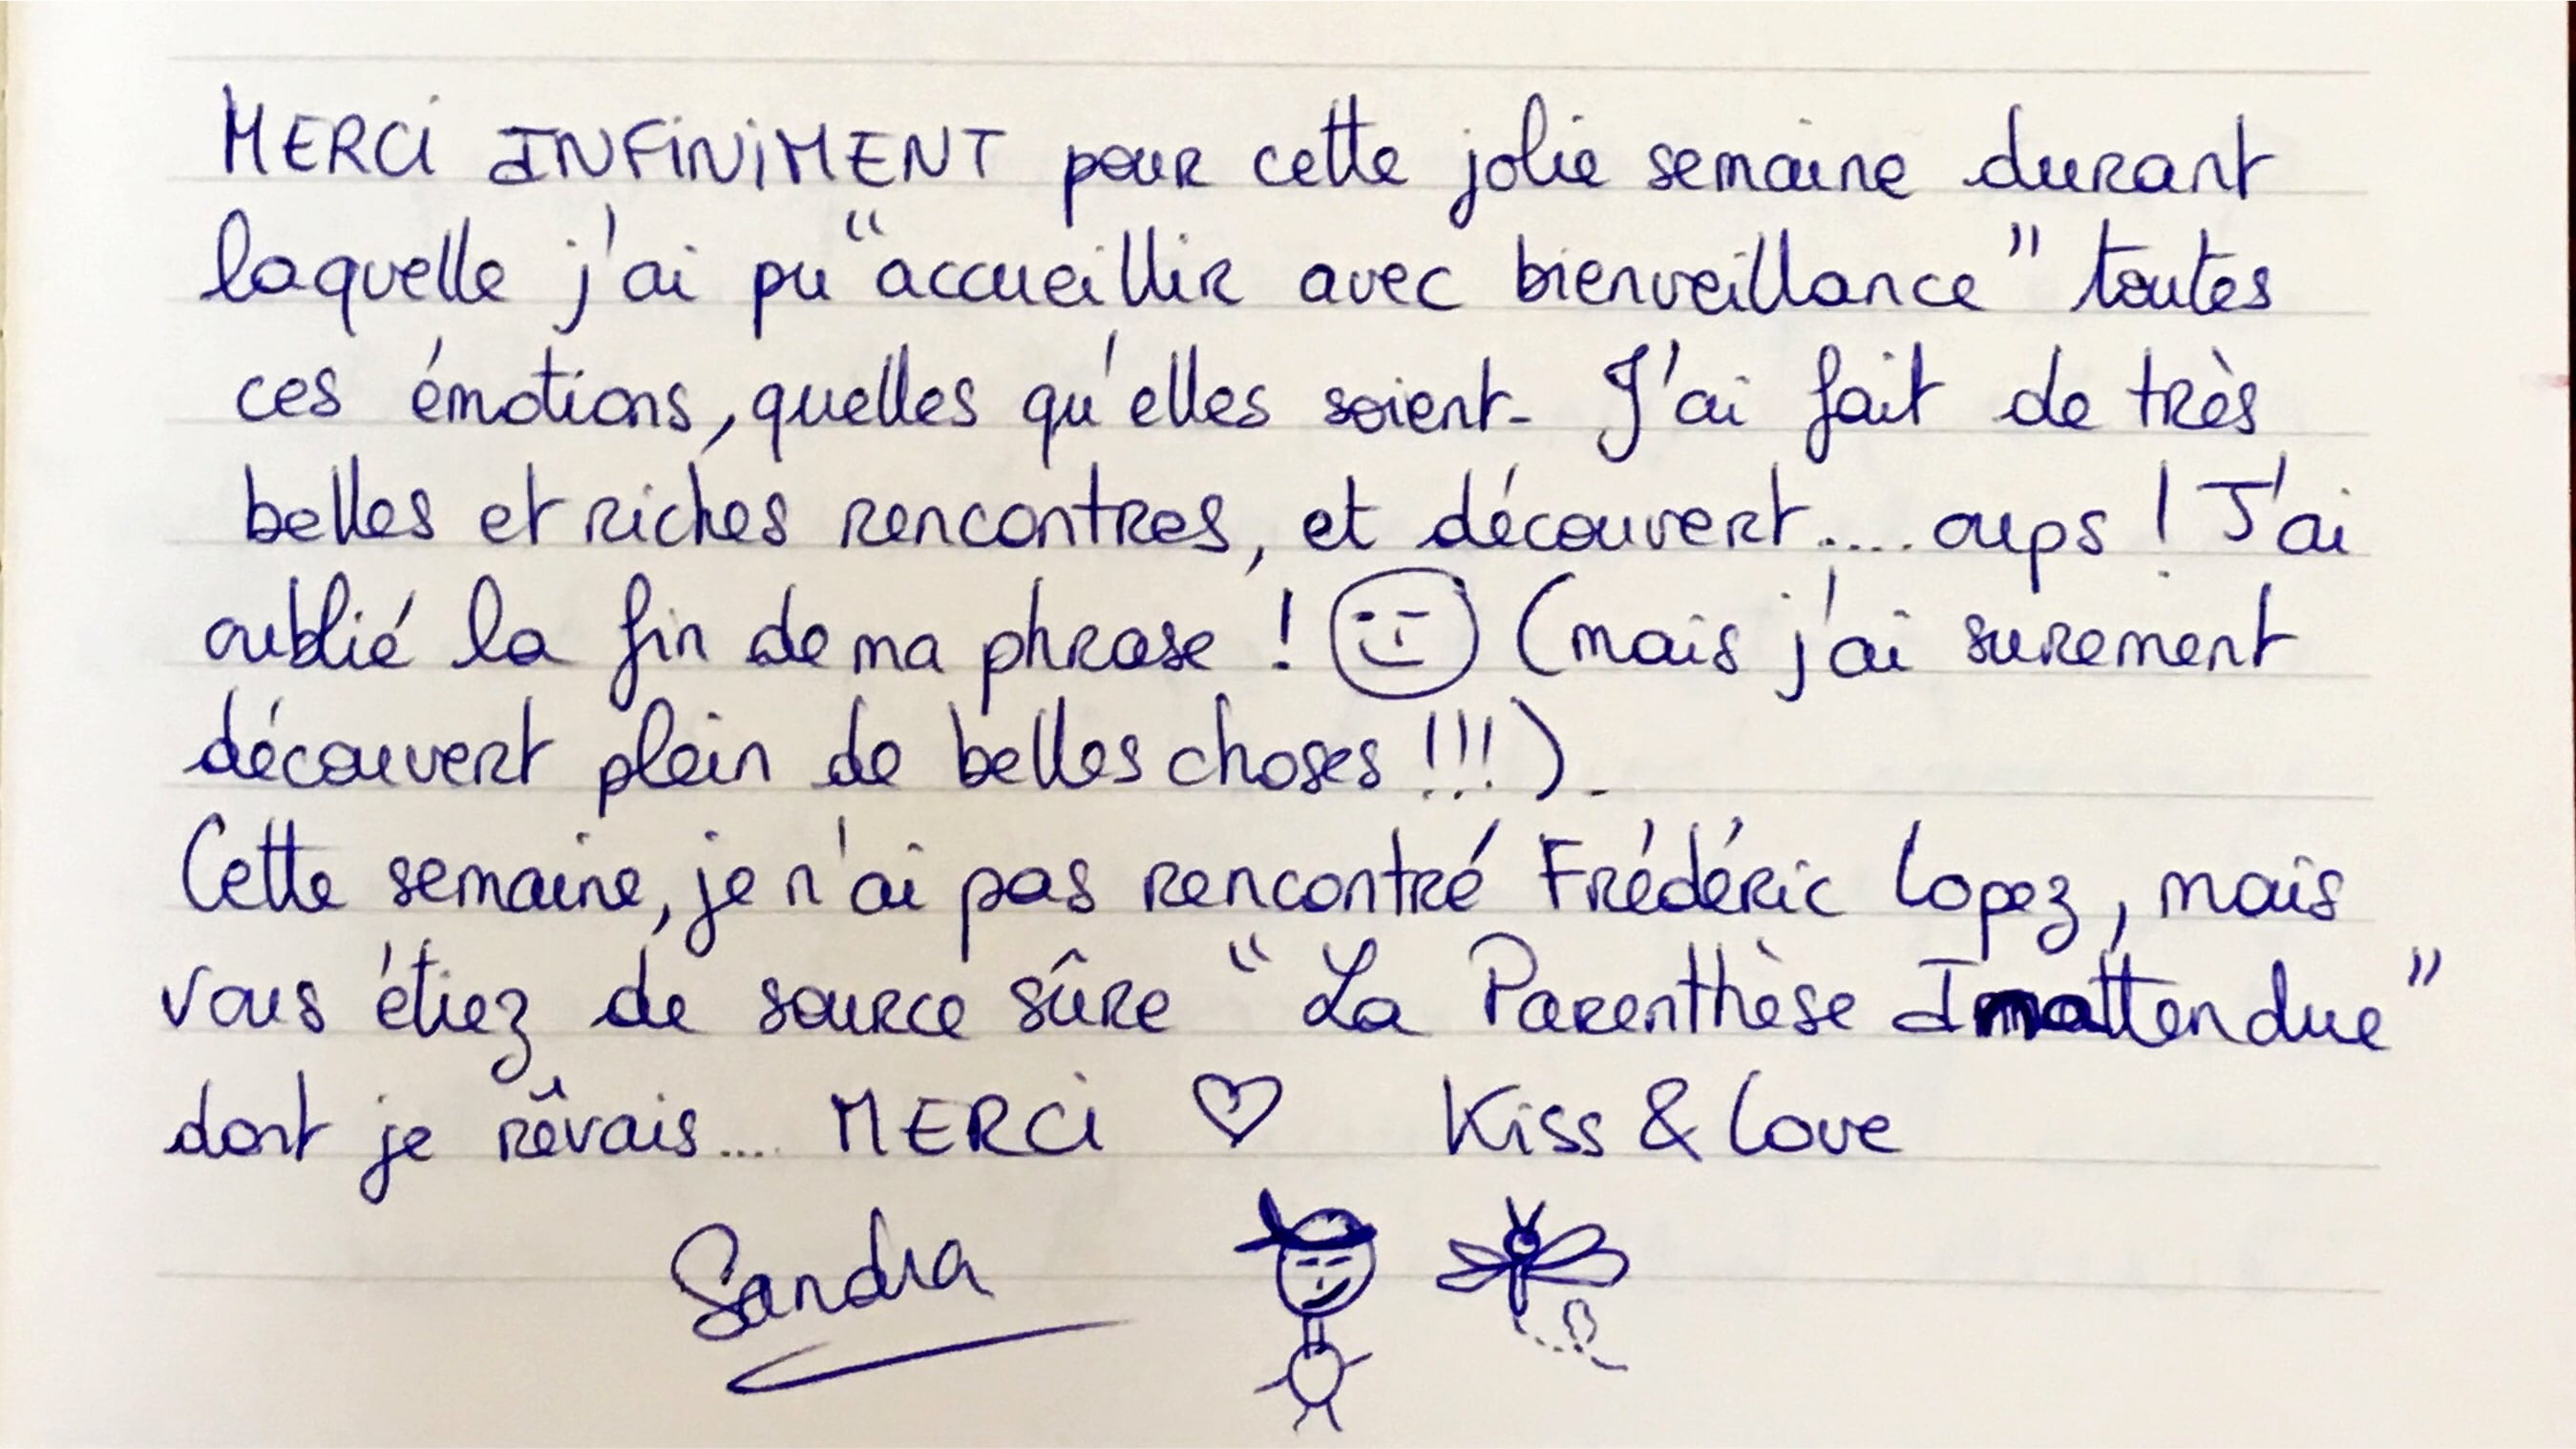 MERCI INFINIMENT pour cette jolie semaine durant
laquelle j'ai pu "accueillir avec bienveillance" toutes
ces émotions, quelles qu'elles soient. J'ai fait de très
belles et riches rencontres, et découvert.... oups ! J'ai
oublié la fin de ma phrase ! (mais j'ai surement
découvert plein de belles choses !!!).
Cette semaine, je n'ai pas rencontré Frédéric Lopez, mais
vous étiez de source sûre "La Parenthèse Inattendue"
dont je rêvais.... MERCI ♡ Kiss & Love
Sandra